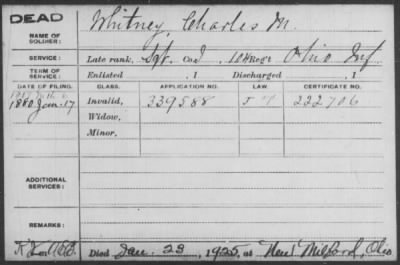 DEAD
NAME OF SOLDIER: Whitney, Charles M.
SERVICE: Late rank, Sgt. Co. I, 104 Reg't Ohio Inf.
TERM OF SERVICE: Enlisted , 1 Discharged , 1
DATE OF FILING. CLASS. APPLICATION NO. LAW. CERTIFICATE NO.
1880 Jan. 17 Invalid, 339588 222706
Widow,
Minor,
ADDITIONAL SERVICES:
REMARKS:
Died Jan. 23, 1925, at New Milford, Ohio